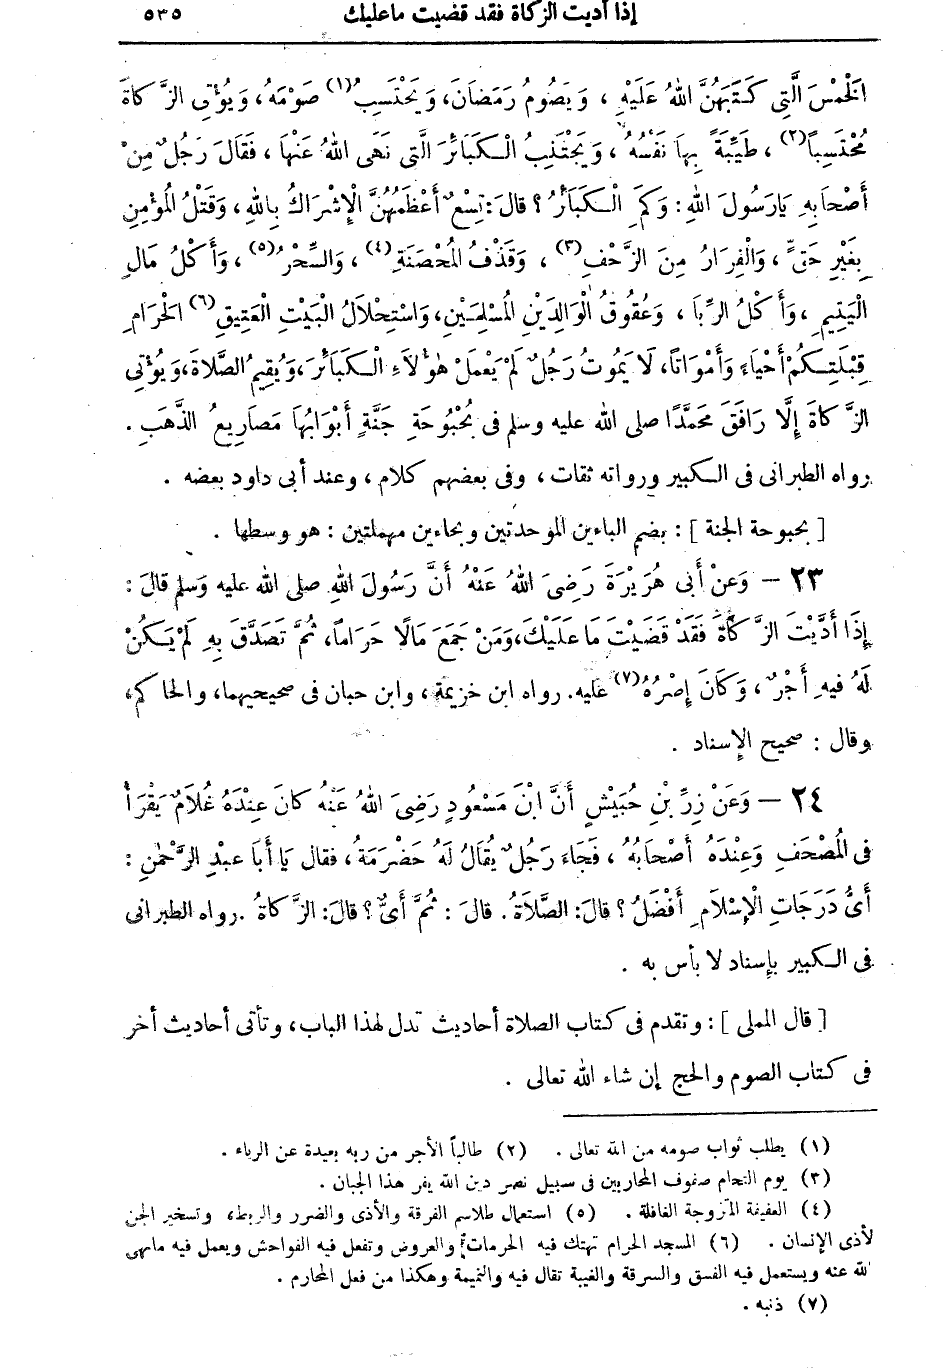 إذا أديت الزكاة فقد قضيت ماعليك ٥٣٥
الْخَمْسَ الَّتِي كَتَبَهُنَّ اللهُ عَلَيْهِ ، وَيَصُومُ رَمَضَانَ، وَيَحْتَسِبُ(١) صَوْمَهُ، وَيُؤْتِي الزَّكَاةَ
مُحْتَسِباً(٢) ، طَيِّبَةً بِهَا نَفْسُهُ ، وَيَجْتَنِبُ الْكَبَائِرَ الَّتِي نَهَى اللهُ عَنْهَا ، فَقَالَ رَجُلٌ مِنْ
أَصْحَابِهِ يَارَسُولَ اللهِ : وَكَمِ الْكَبَائِرُ ؟ قالَ: تِسْعٌ أَعْظَمُهُنَّ الْإِشْرَاكُ بِاللهِ، وَقَتْلُ الْمُؤْمِنِ
بِغَيْرِ حَقٍّ ، وَالْفِرَارُ مِنَ الزَّحْفِ(٣) ، وَقَذْفُ الْمُحْصَنَةِ(٤) ، وَالسِّحْرُ(٥) ، وَأَكْلُ مَالِ
الْيَتِيمِ ، وَأَكْلُ الرِّبَا ، وَعُقُوقُ الْوَالِدَيْنِ الْمُسْلِمَيْنِ، وَاسْتِحْلَالُ الْبَيْتِ الْعَتِيقِ(٦) الْحَرَامِ
قِبْلَتِكُمْ أَحْيَاءً وَأَمْوَاتاً، لَا يَمُوتُ رَجُلٌ لَمْ يَعْمَلْ هٰؤُلَاءِ الْكَبَائِرَ، وَيُقِيمُ الصَّلَاةَ، وَيُؤْتِي
الزَّكَاةَ إِلَّا رَافَقَ مُحَمَّدًا صلى الله عليه وسلم فى بُحْبُوحَةِ جَنَّةٍ أَبْوَابُهَا مَصَارِيعُ الذَّهَبِ .
رواه الطبرانى فى الكبير ورواته ثقات ، وفى بعضهم كلام ، وعند أبى داود بعضه .
[ بحبوحة الجنة ] : بضم الباءين الموحدتين وبحاءين مهملتين : هو وسطها .
٢٣ – وَعَنْ أَبِى هُرَيْرَةَ رَضِىَ اللهُ عَنْهُ أَنَّ رَسُولَ اللهِ صلى الله عليه وَسلم قالَ :
إِذَا أَدَّيْتَ الزَّكَاةَ فَقَدْ قَضَيْتَ مَا عَلَيْكَ، وَمَنْ جَمَعَ مَالًا حَرَاماً، ثُمَّ تَصَدَّقَ بِهِ لَمْ يَكُنْ
لَهُ فِيهِ أَجْرٌ ، وَكَانَ إِصْرُهُ(٧) عَلَيه. رواه ابن خزيمة ، وابن حبان فى صحيحيهما، والحاكم،
وقال : صحيح الإسناد .
٢٤ – وَعَنْ زِرِّ بْنِ حُبَيْشٍ أَنَّ ابْنَ مَسْعُودٍ رَضِىَ اللهُ عَنْهُ كانَ عِنْدَهُ غُلَامٌ يَقْرَأُ
فِى الْمُصْحَفِ وَعِنْدَهُ أَصْحَابُهُ ، فَجَاءَ رَجُلٌ يُقَالُ لَهُ حَضْرَمَةُ ، فقال يَا أَبَا عبدِ الرَّحْمٰنِ :
أَىُّ دَرَجَاتِ الْإِسْلَامِ أَفْضَلُ ؟ قالَ: الصَّلَاةُ . قالَ : ثُمَّ أَىٌّ ؟ قالَ: الزَّكَاةُ . رواه الطبرانى
فى الكبير بإسناد لا بأس به .
[ قال المملى ] : وتقدم فى كتاب الصلاة أحاديث تدل لهذا الباب ، وتأتى أحاديث أخر
فى كتاب الصوم والحج إن شاء الله تعالى .
(١) يطلب ثواب صومه من الله تعالى . (٢) طالباً الأجر من ربه بعيدة عن الرياء .
(٣) يوم التحام صفوف المحاربين فى سبيل نصر دين الله يفر هذا الجبان .
(٤) العفيفة المتزوجة الغافلة . (٥) استعمال طلاسم الفرقة والأذى والضرر والربط، وتسخير الجن
لأذى الإنسان . (٦) المسجد الحرام تهتك فيه الحرمات والعروض وتفعل فيه الفواحش ويعمل فيه مانهى
الله عنه ويستعمل فيه الفسق والسرقة والغيبة تقال فيه والنميمة وهكذا من فعل المحارم .
(٧) ذنبه .